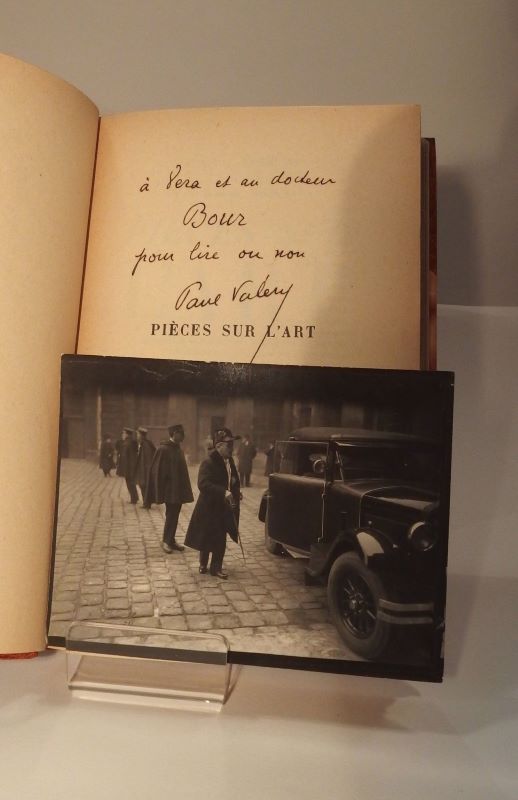 à Vera et au docteur
Bour
pour lire ou non
Paul Valéry
PIÈCES SUR L'ART